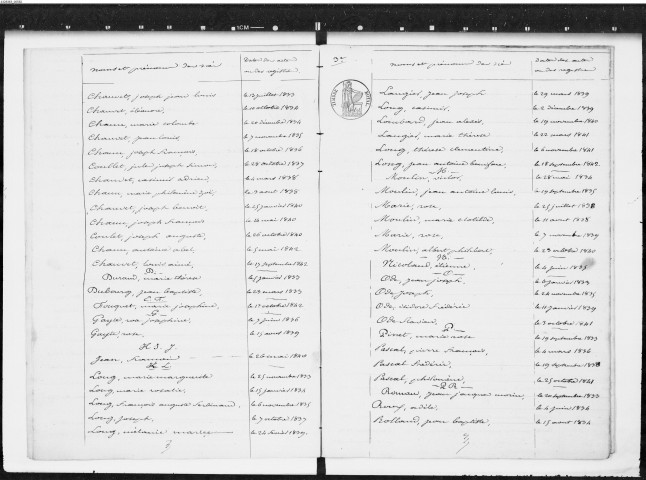 noms et prénoms
Dates des actes
ou des registres
Chauvet, joseph jean louis le 13 juillet 1833
Chauvet, éléonore le 10 octobre 1834
Chaix, marie le 20 décembre 1834
Chauvet, jean louis le 9 novembre 1835
Chaix, joseph françois, le 18 octobre 1836
Coullet, jules joseph le 28 octobre 1837
Chauvet, casimir adrien le 4 mars 1838
Chaix, marie philomène le 3 août 1838
Chauvet, joseph benoît le 25 janvier 1840
Chaix, joseph françois le 20 mai 1840
Coulet, joseph auguste le 26 octobre 1840
Chaix, antoine le 5 mai 1842
Chauvet, louis aimé, le 17 septembre 1842
D.
Durand, marie thérèse le 5 janvier 1833
Dubourg, jean baptiste, le 23 mars 1833
E. F.
Fouquet, marie joséphine, le 17 octobre 1842
G
Gayte, rose joséphine, le 7 juin 1836
Gayte, rose, le 15 avril 1839
H I J
Jean, françois le 26 mai 1840
K L
Long, marie marguerite le 25 novembre 1833
Long marie rosalie le 15 janvier 1834
Long, françois auguste ferdinand, le 6 novembre 1835
Long, joseph, le 7 octobre 1837
Long, mélanie marie le 24 février 1839.
37
noms et prénoms
Dates des actes
ou des registres
Laugier, jean joseph le 29 mars 1839
Long, casimir, le 2 décembre 1839
Lombard, jean alexis, le 19 novembre 1840
Laugier, marie thérèse le 22 mars 1841
Long, thérèse clémentine le 6 novembre 1841
Long, jean antoine le 18 septembre 1842
M
Moulin, victor, le 28 mai 1834
Moulin, jean antoine louis, le 19 septembre 1835
Marie, rose, le 25 juillet 1838
Moulin, marie clotilde, le 11 avril 1838
Marie, rose, le 7 novembre 1839
Moulin, albert le 23 octobre 1840
N.
Nicolaud, étienne le 4 juin 1835
O
Ode, jean joseph, le 2 janvier 1833
Ode, joseph, le 24 novembre 1835
Ode, isidore frédéric le 11 janvier 1839
Ode le 3 octobre 1841
P
Pinet, marie rose le 19 septembre 1833
Pascal, pierre françois, le 4 mars 1836
Pascal frédéric le 19 septembre 1838
Pascal, philomène, le 25 octobre 1841
Q R
Roman, jean jacques le 20 septembre 1833
Roux, adèle, le 4 juin 1834
Rolland, jean baptiste, le 15 août 1834